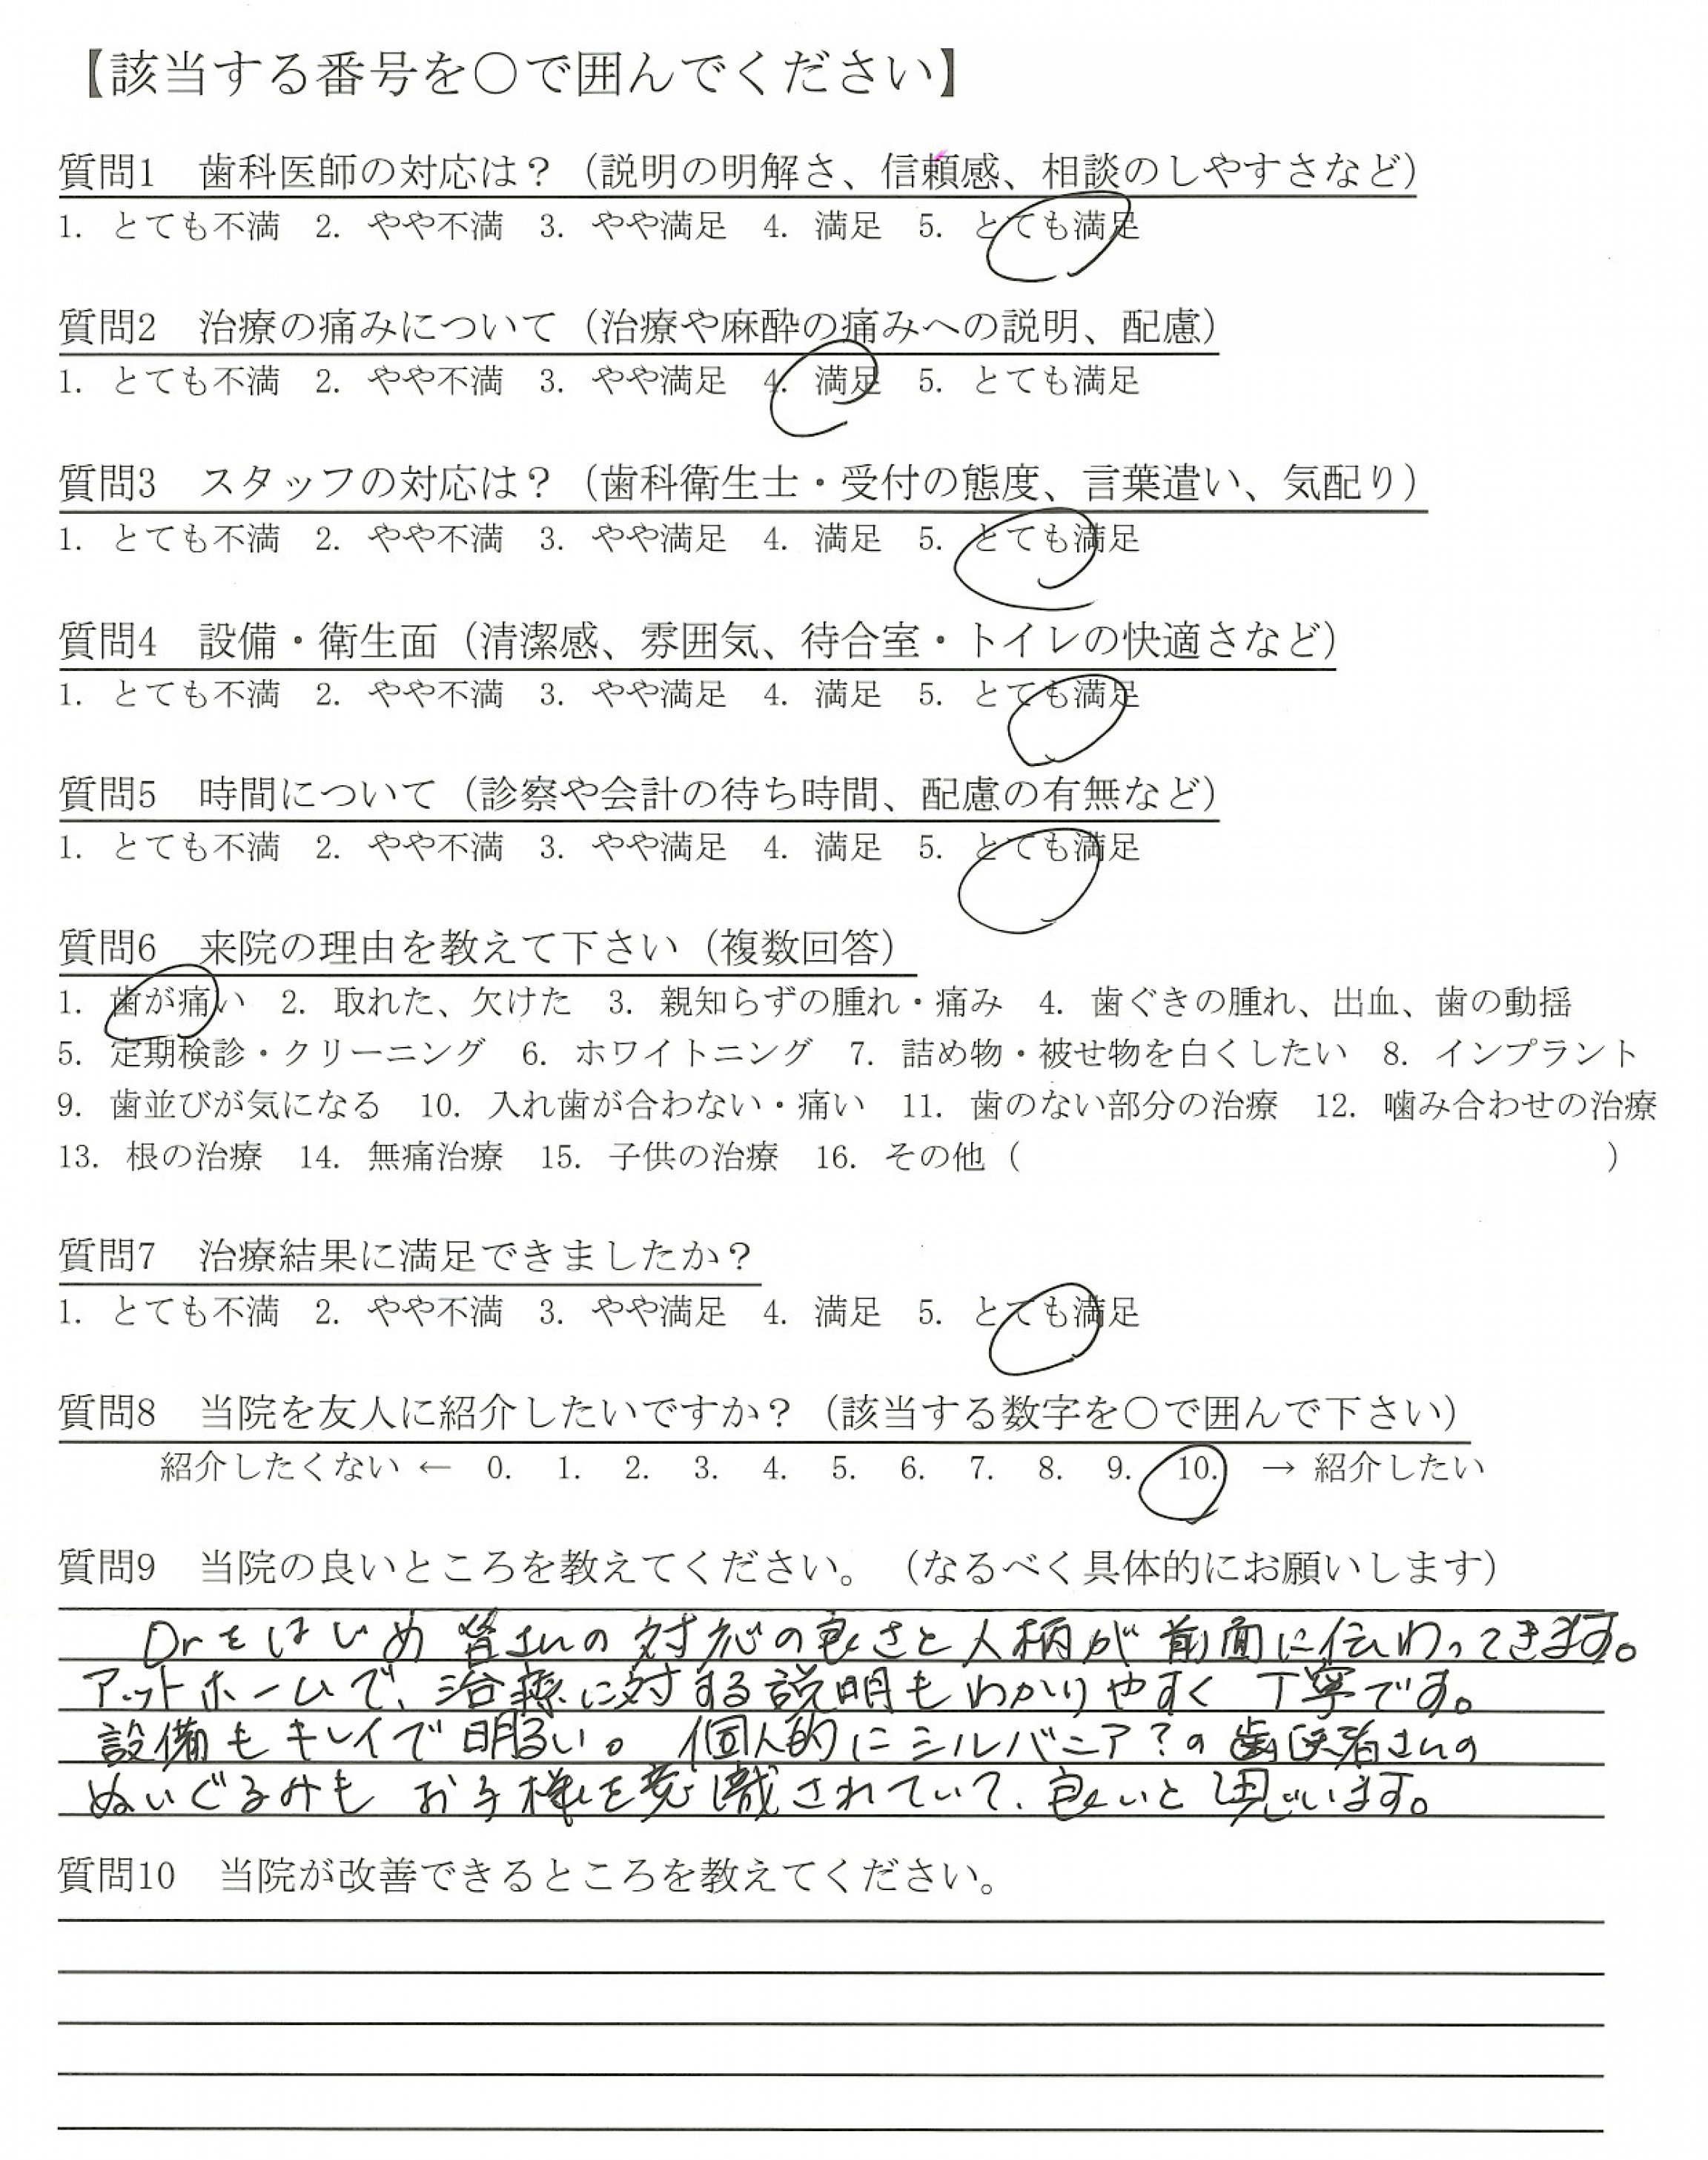 【該当する番号を○で囲んでください】
質問1　歯科医師の対応は？（説明の明解さ、信頼感、相談のしやすさなど）
1. とても不満　2. やや不満　3. やや満足　4. 満足　5. とても満足
質問2　治療の痛みについて（治療や麻酔の痛みへの説明、配慮）
1. とても不満　2. やや不満　3. やや満足　4. 満足　5. とても満足
質問3　スタッフの対応は？（歯科衛生士・受付の態度、言葉遣い、気配り）
1. とても不満　2. やや不満　3. やや満足　4. 満足　5. とても満足
質問4　設備・衛生面（清潔感、雰囲気、待合室・トイレの快適さなど）
1. とても不満　2. やや不満　3. やや満足　4. 満足　5. とても満足
質問5　時間について（診察や会計の待ち時間、配慮の有無など）
1. とても不満　2. やや不満　3. やや満足　4. 満足　5. とても満足
質問6　来院の理由を教えて下さい（複数回答）
1. 歯が痛い　2. 取れた、欠けた　3. 親知らずの腫れ・痛み　4. 歯ぐきの腫れ、出血、歯の動揺
5. 定期検診・クリーニング　6. ホワイトニング　7. 詰め物・被せ物を白くしたい　8. インプラント
9. 歯並びが気になる　10. 入れ歯が合わない・痛い　11. 歯のない部分の治療　12. 噛み合わせの治療
13. 根の治療　14. 無痛治療　15. 子供の治療　16. その他（　　　　　　　　　　）
質問7　治療結果に満足できましたか？
1. とても不満　2. やや不満　3. やや満足　4. 満足　5. とても満足
質問8　当院を友人に紹介したいですか？（該当する数字を○で囲んで下さい）
紹介したくない ← 0. 1. 2. 3. 4. 5. 6. 7. 8. 9. 10. → 紹介したい
質問9　当院の良いところを教えてください。（なるべく具体的にお願いします）
Drをはじめ 皆さんの 対応の良さと人柄が 前面に伝わってきます。
アットホームで、治療に対する説明もわかりやすく 丁寧です。
設備もキレイで明るい。 個人的にシルバニア？の歯医者さんの
ぬいぐるみも お子様を意識されていて、良いと思います。
質問10　当院が改善できるところを教えてください。